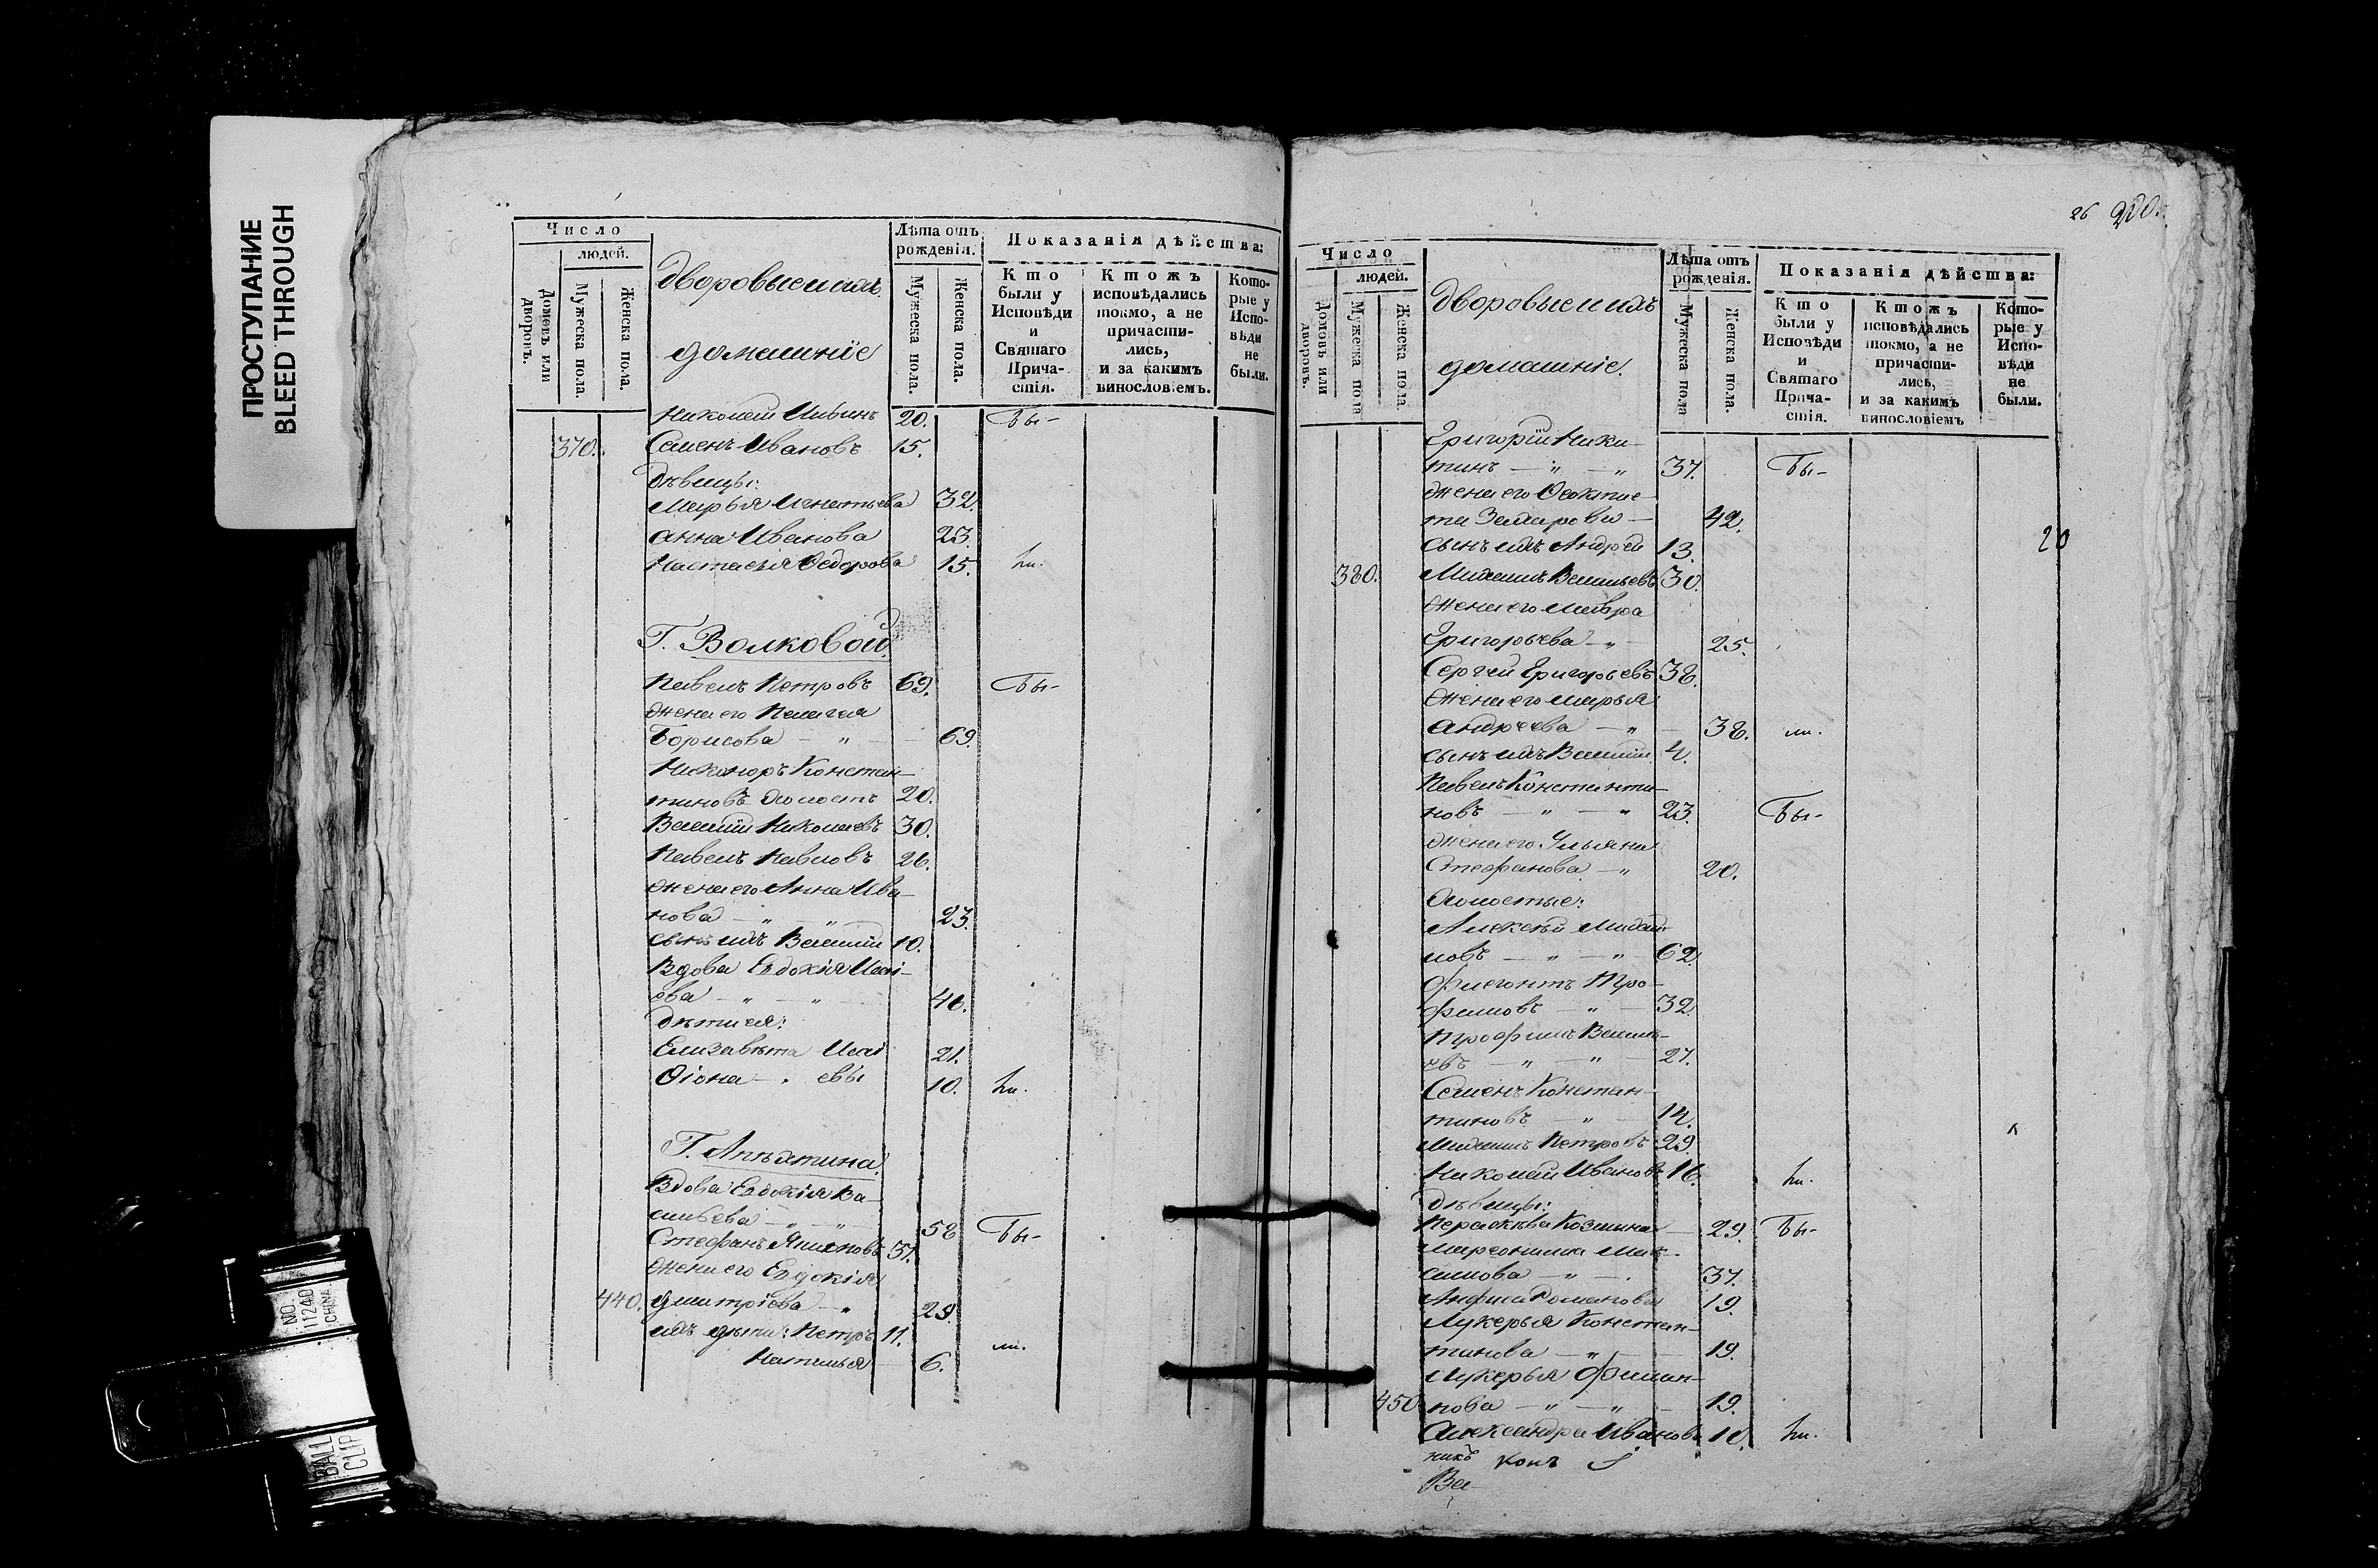 ПРОСТУПАНИЕ
BLEED THROUGH
Число
людей.
Домовъ или дворовъ.
Мужеска пола.
Женска пола.
Дворовые ихъ
домашніе
Лѣта отъ рожденія.
Мужеска пола.
Женска пола.
Показанія дѣйства:
Кто были у Исповѣди и Святаго Причастія.
Ктожъ исповѣдались токмо, а не причастились, и за какимъ винословіемъ.
Которые у Исповѣди не были.
Николай 20. Бы-
370. Семенъ Ивановъ 15.
Дѣвицы:
Марья Игнатьева 32.
Анна Иванова 23.
Настасія Ѳедорова 15.
Г. Волковой
Павелъ Петровъ 69. Бы-
жена его Пелагея
Борисова — „ — 69.
Никаноръ Констан-
тиновъ холостъ 20.
Василій Николаевъ 30.
Павелъ Павловъ 26.
жена его Анна Ива-
нова — „ — „ — 23.
сынъ ихъ Василій 10.
Вдова Евдокія Исаі-
ева — „ — „ 46.
дѣти ея:
Елизавета Исаі 21.
Ѳіона — „ евы 10.
Г. Апухтина
Вдова Евдокія Ва-
сильева — „ — „ 58 Бы-
Стефанъ 37.
жена его Евдокія
440. Дмитріева — „ 29.
ихъ дѣти: Петръ 11.
Наталья 6.
NO. 11240
CHINA
BALL CLIP
26 200.
Число
людей.
Домовъ или дворовъ.
Мужеска пола
Женска пола.
Дворовые ихъ
домашніе.
Лѣта отъ рожденія.
Мужеска пола
Женска пола.
Показанія дѣйства:
Кто были у Исповѣди и Святаго Причастія.
Ктожъ исповѣдались токмо, а не причастились, и за какимъ винословіемъ
Которые у Исповѣди не были.
Григорій Ники-
тинъ — „ — „ 37. Бы-
жена его Ѳеоктис-
та Захарова — 42.
20
сынъ ихъ Андрей 13.
380. Михаилъ Васильевъ 30.
жена его Мавра
Григорьева — „ — 25.
Сергей Григорьевъ 38.
жена его Марья
Андреева — „ — 38.
сынъ ихъ Василій 4.
Павелъ Константи-
новъ — „ — „ 23. Бы-
жена его Ульяна
Стефанова — „ 20.
Холостые:
Алексѣй Михай-
ловъ — „ — „ — 62.
Флегонтъ Тро-
фимовъ — „ — 32.
Трофимъ Василь-
евъ — „ — „ — 27.
Семенъ Констан-
тиновъ — „ — 14.
Михаилъ Петровъ 29.
Николай Ивановъ 16.
Дѣвицы:
Параскѣва Козмина — 29. Бы-
37.
Анфиса Романова 19.
Лукерья Констан-
тинова — „ — 19.
Лукерья Филип-
450. пова — „ — „ — 19.
Александра Иванов. 10.